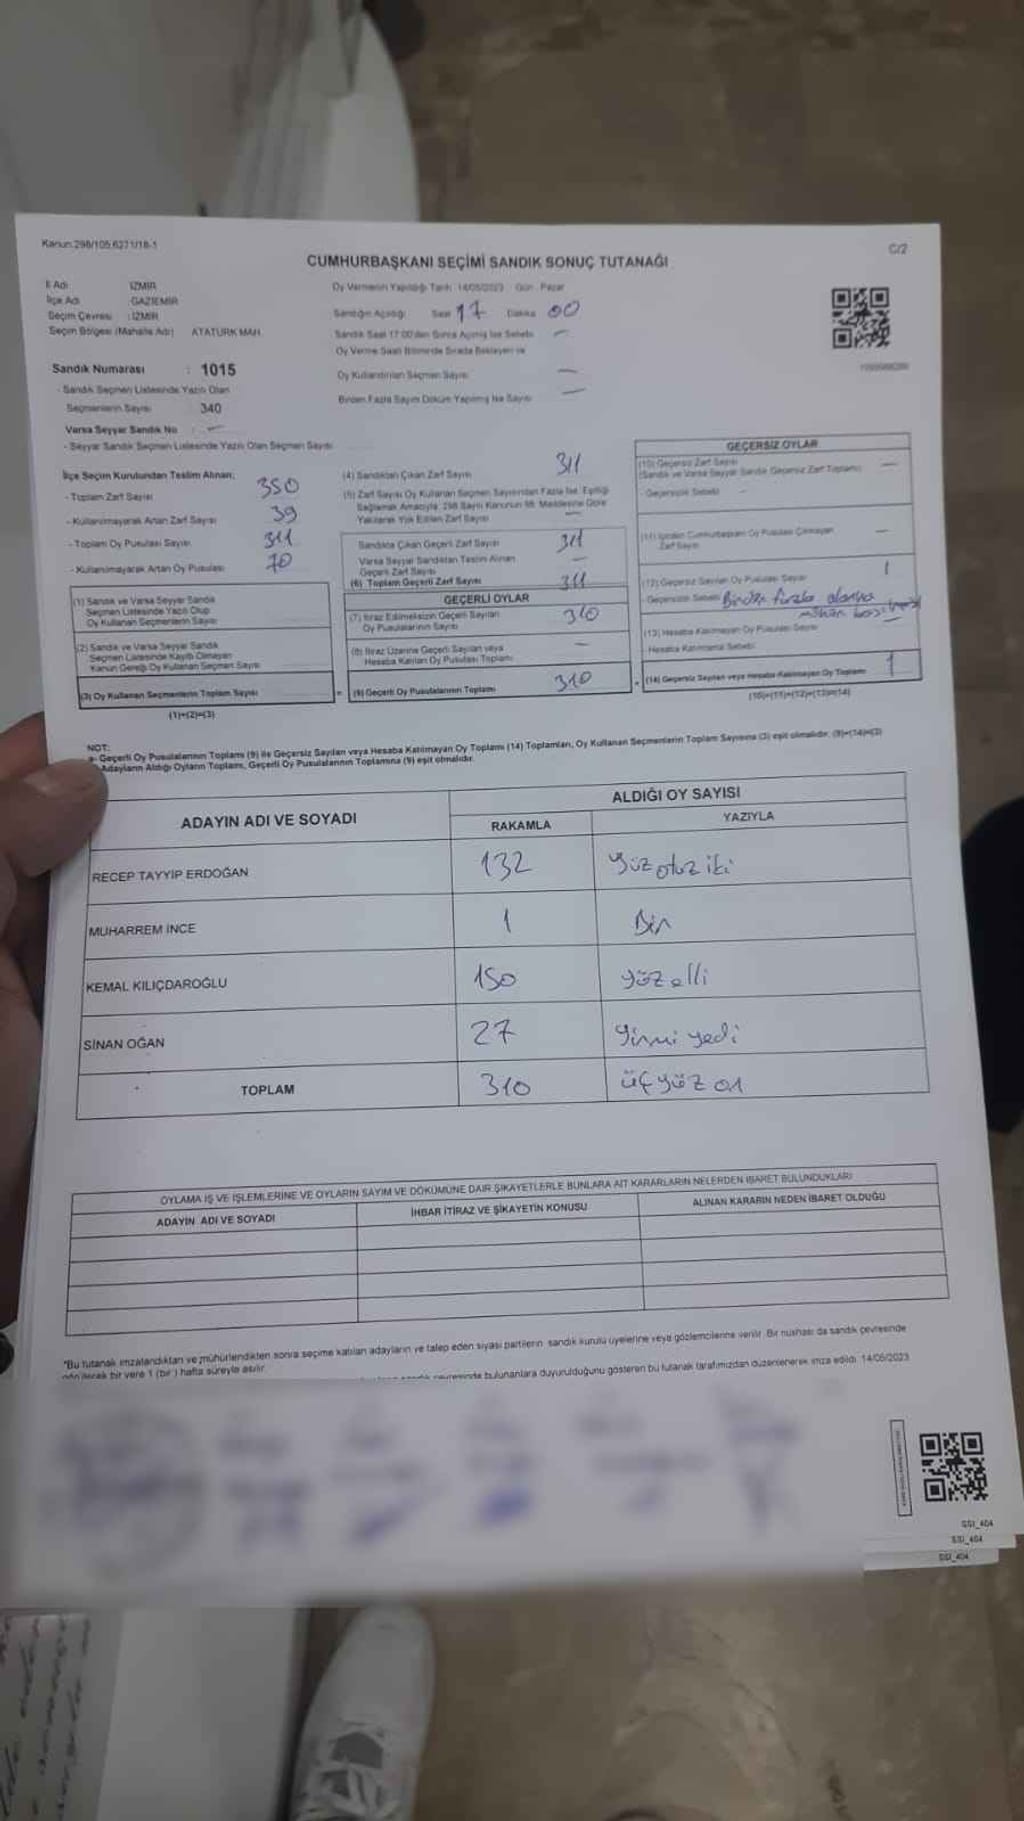 Kanun:298/105,6271/18-1
C/2
CUMHURBAŞKANI SEÇİMİ SANDIK SONUÇ TUTANAĞI
İl Adı İZMİR
İlçe Adı GAZİEMİR
Seçim Çevresi : İZMİR
Seçim Bölgesi (Mahalle Adı) ATATÜRK MAH.
Oy Vermenin Yapıldığı Tarih 14/05/2023 Gün Pazar
Sandığın Açıldığı Saat 17 Dakika 00
Sandık Saat 17:00'dan Sonra Açılmış İse Sebebi —
Oy Verme Saati Bitiminde Sırada Bekleyen ve
Oy Kullandırılan Seçmen Sayısı —
Birden Fazla Sayım Döküm Yapılmış İse Sayısı —
Sandık Numarası : 1015
- Sandık Seçmen Listesinde Yazılı Olan
Seçmenlerin Sayısı 340
Varsa Seyyar Sandık No : —
- Seyyar Sandık Seçmen Listesinde Yazılı Olan Seçmen Sayısı
İlçe Seçim Kurulundan Teslim Alınan;
- Toplam Zarf Sayısı 350
- Kullanılmayarak Artan Zarf Sayısı 39
- Toplam Oy Pusulası Sayısı 311
- Kullanılmayarak Artan Oy Pusulası 70
(1) Sandık ve Varsa Seyyar Sandık
Seçmen Listesinde Yazılı Olup
Oy Kullanan Seçmenlerin Sayısı
(2) Sandık ve Varsa Seyyar Sandık
Seçmen Listesinde Kayıtlı Olmayan
Kanun Gereği Oy Kullanan Seçmen Sayısı
(3) Oy Kullanan Seçmenlerin Toplam Sayısı
(1)+(2)=(3)
(4) Sandıktan Çıkan Zarf Sayısı 311
(5) Zarf Sayısı Oy Kullanan Seçmen Sayısından Fazla İse, Eşitliği
Sağlamak Amacıyla; 298 Sayılı Kanunun 98. Maddesine Göre
Yakılarak Yok Edilen Zarf Sayısı —
Sandıkta Çıkan Geçerli Zarf Sayısı 311
Varsa Seyyar Sandıktan Teslim Alınan
Geçerli Zarf Sayısı —
(6) Toplam Geçerli Zarf Sayısı 311
GEÇERLİ OYLAR
(7) İtiraz Edilmeksizin Geçerli Sayılan
Oy Pusulalarının Sayısı 310
(8) İtiraz Üzerine Geçerli Sayılan veya
Hesaba Katılan Oy Pusulası Toplamı —
= (9) Geçerli Oy Pusulalarının Toplamı 310
GEÇERSİZ OYLAR
(10) Geçersiz Zarf Sayısı
(Sandık ve Varsa Seyyar Sandık Geçersiz Zarf Toplamı) —
- Geçersizlik Sebebi –
(11) İçinden Cumhurbaşkanı Oy Pusulası Çıkmayan
Zarf Sayısı —
(12) Geçersiz Sayılan Oy Pusulası Sayısı 1
- Geçersizlik Sebebi Birden fazla alana
mühür
(13) Hesaba Katılmayan Oy Pusulası Sayısı —
- Hesaba Katılmama Sebebi
+ (14) Geçersiz Sayılan veya Hesaba Katılmayan Oy Toplamı 1
(10)+(11)+(12)+(13)=(14)
NOT:
a- Geçerli Oy Pusulalarının Toplamı (9) ile Geçersiz Sayılan veya Hesaba Katılmayan Oy Toplamı (14) Toplamları, Oy Kullanan Seçmenlerin Toplam Sayısına (3) eşit olmalıdır. (9)+(14)=(3)
Adayların Aldığı Oyların Toplamı, Geçerli Oy Pusulalarının Toplamına (9) eşit olmalıdır.
ADAYIN ADI VE SOYADI
ALDIĞI OY SAYISI
RAKAMLA YAZIYLA
RECEP TAYYİP ERDOĞAN 132 yüz otuz iki
MUHARREM İNCE 1 Bir
KEMAL KILIÇDAROĞLU 150 yüz elli
SİNAN OĞAN 27 yirmi yedi
TOPLAM 310 üçyüz on
OYLAMA İŞ VE İŞLEMLERİNE VE OYLARIN SAYIM VE DÖKÜMÜNE DAİR ŞİKAYETLERLE BUNLARA AİT KARARLARIN NELERDEN İBARET BULUNDUKLARI
ADAYIN ADI VE SOYADI İHBAR İTİRAZ VE ŞİKAYETİN KONUSU ALINAN KARARIN NEDEN İBARET OLDUĞU
"Bu tutanak imzalandıktan ve mühürlendikten sonra seçime katılan adayların ve talep eden siyasi partilerin sandık kurulu üyelerine veya gözlemcilerine verilir. Bir nüshası da sandık çevresinde
bir yere 1 (bir) hafta süreyle asılır.
çevresinde bulunanlara duyurulduğunu gösteren bu tutanak tarafımızdan düzenlenerek imza edildi. 14/05/2023
SSI_404
SSI_404
SSI_404